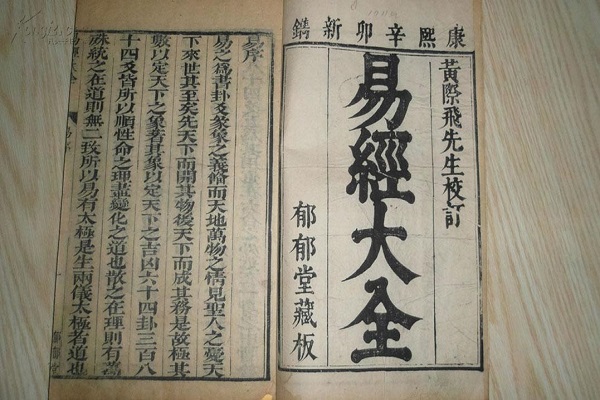 康熙辛卯新鐫
黃際飛先生校訂
易經大全
郁郁堂藏板
易序
易之爲書卦爻彖象之義備而天地萬物之情見聖人之憂天
下來世其至矣先天下而開其物後天下而成其務是故極其
數以定天下之象著其象以定天下之吉凶六十四卦三百八
十四爻皆所以順性命之理盡變化之道也散之在理則有萬
殊統之在道則無二致所以易有太極是生兩儀太極者道也